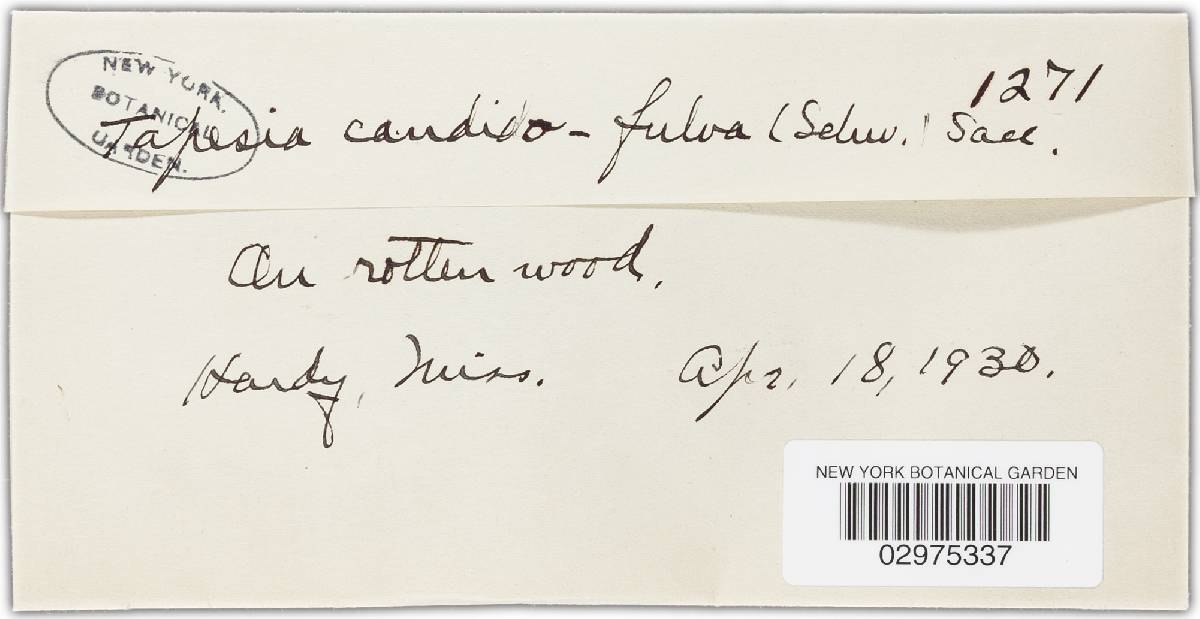 NEW YORK
BOTANICAL
GARDEN.
1271
Tapesia candido-fulva (Schw.) Sacc.
On rotten wood.
Hardy, Miss. Apr. 18, 1930.
NEW YORK BOTANICAL GARDEN
02975337